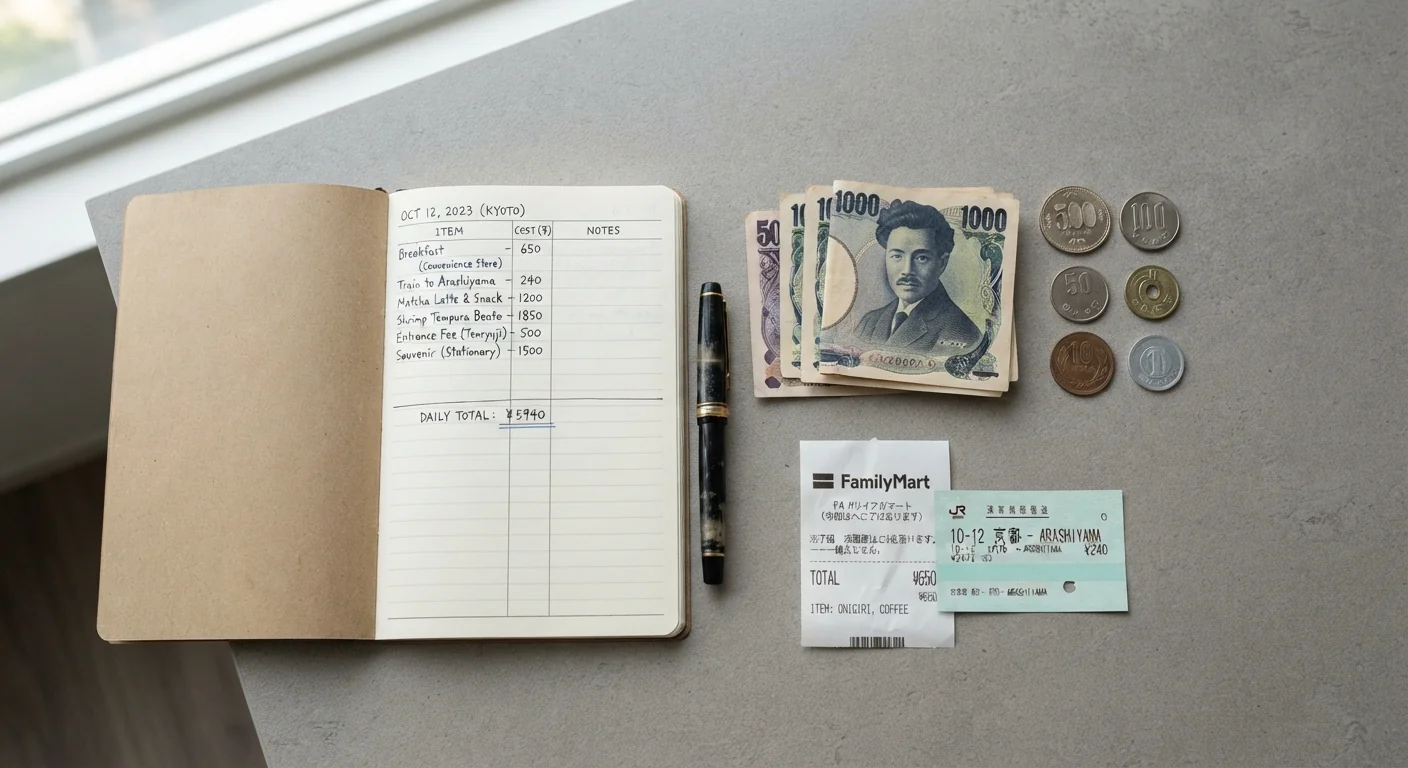 OCT 12, 2023 (KYOTO)
ITEM CEST (¥) NOTES
Breakfast - 650
(Convenience Stere)
Train to Arashiyama - 240
Matcha Latte & Snack - 1200
Shrimp Tempura Bento - 1850
Entrance Fee (Tenryuji) - 500
Souvenir (Stationary) - 1500
DAILY TOTAL: ¥5940
50
1000 1000
500
100
50
10
1
FamilyMart
TOTAL ¥650
ITEM: ONIGIRI, COFFEE
JR
10-12 京都 - ARASHIYAMA
¥240